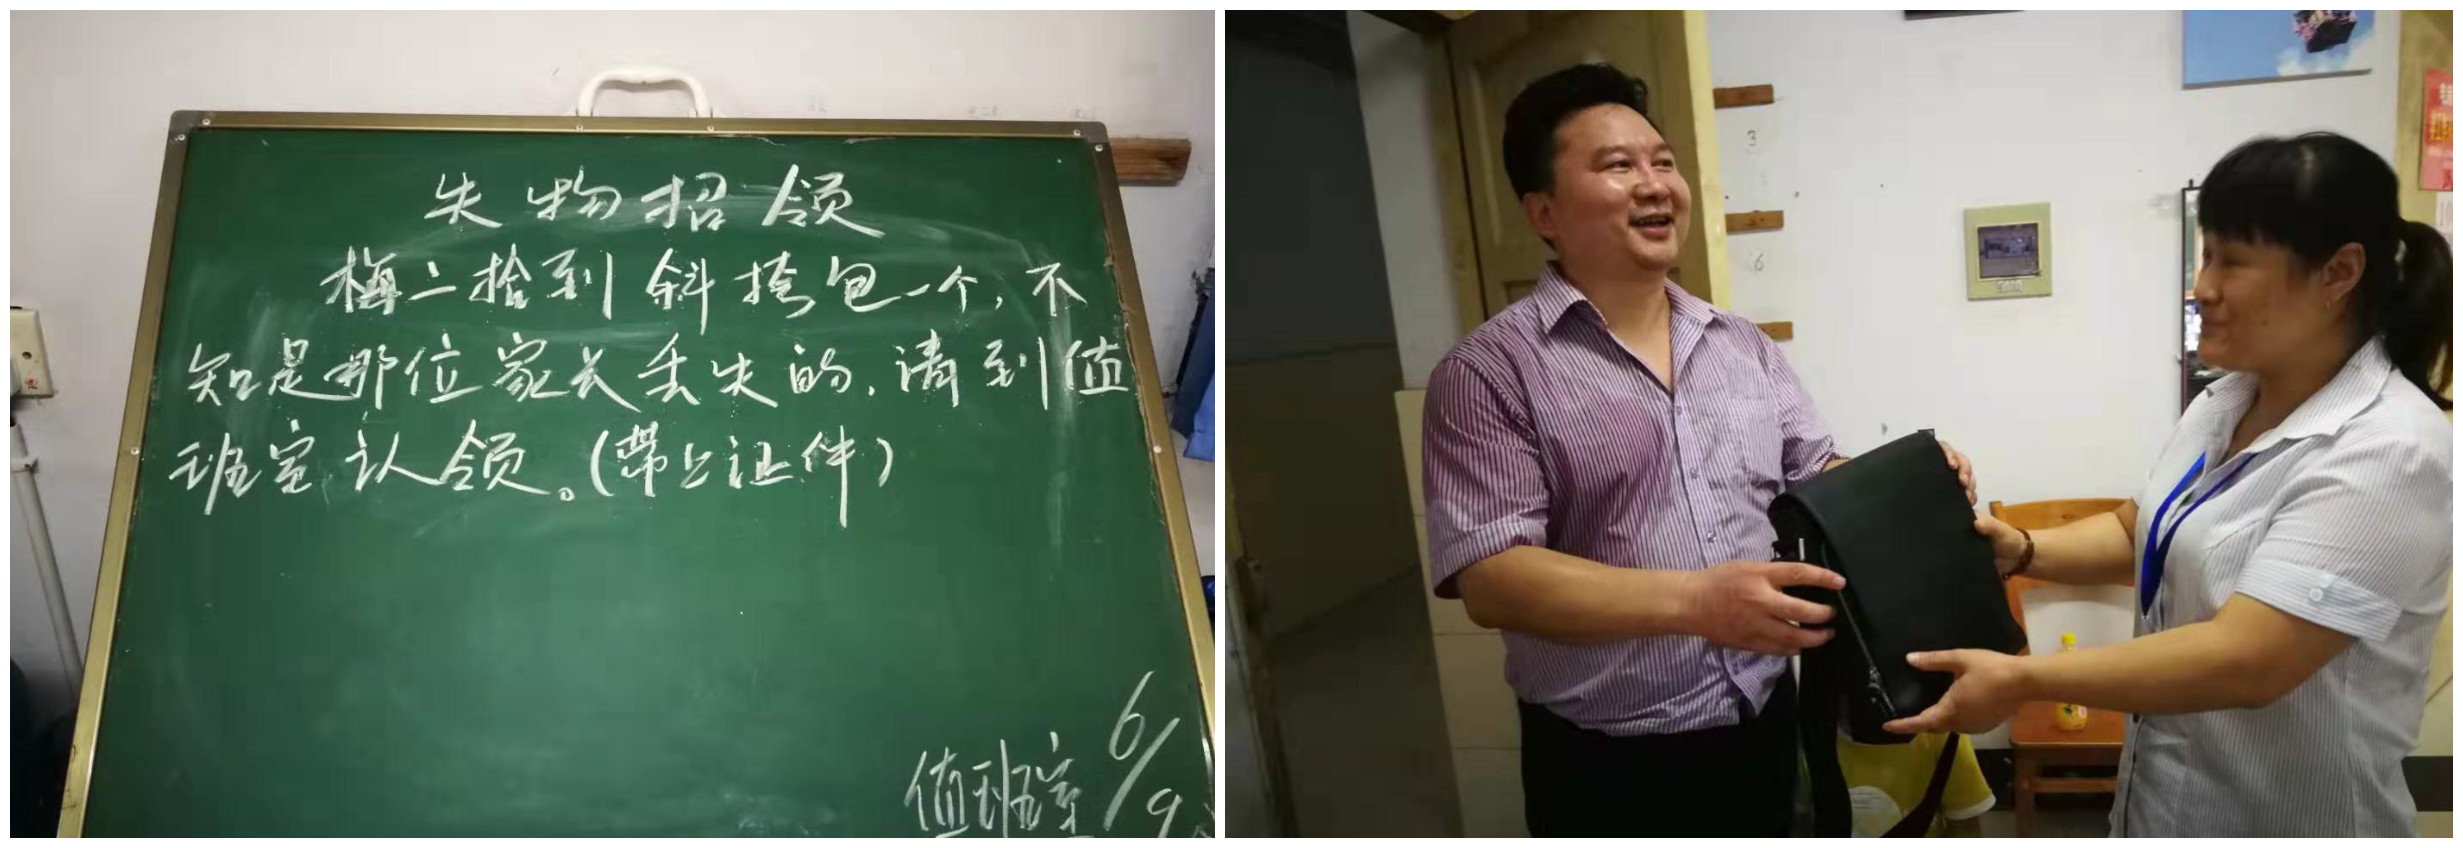 失物招领
梅二拾到斜挎包一个，不
知是那位家长丢失的，请到值
班室认领。(带上证件)
值班室 6/9
3
6